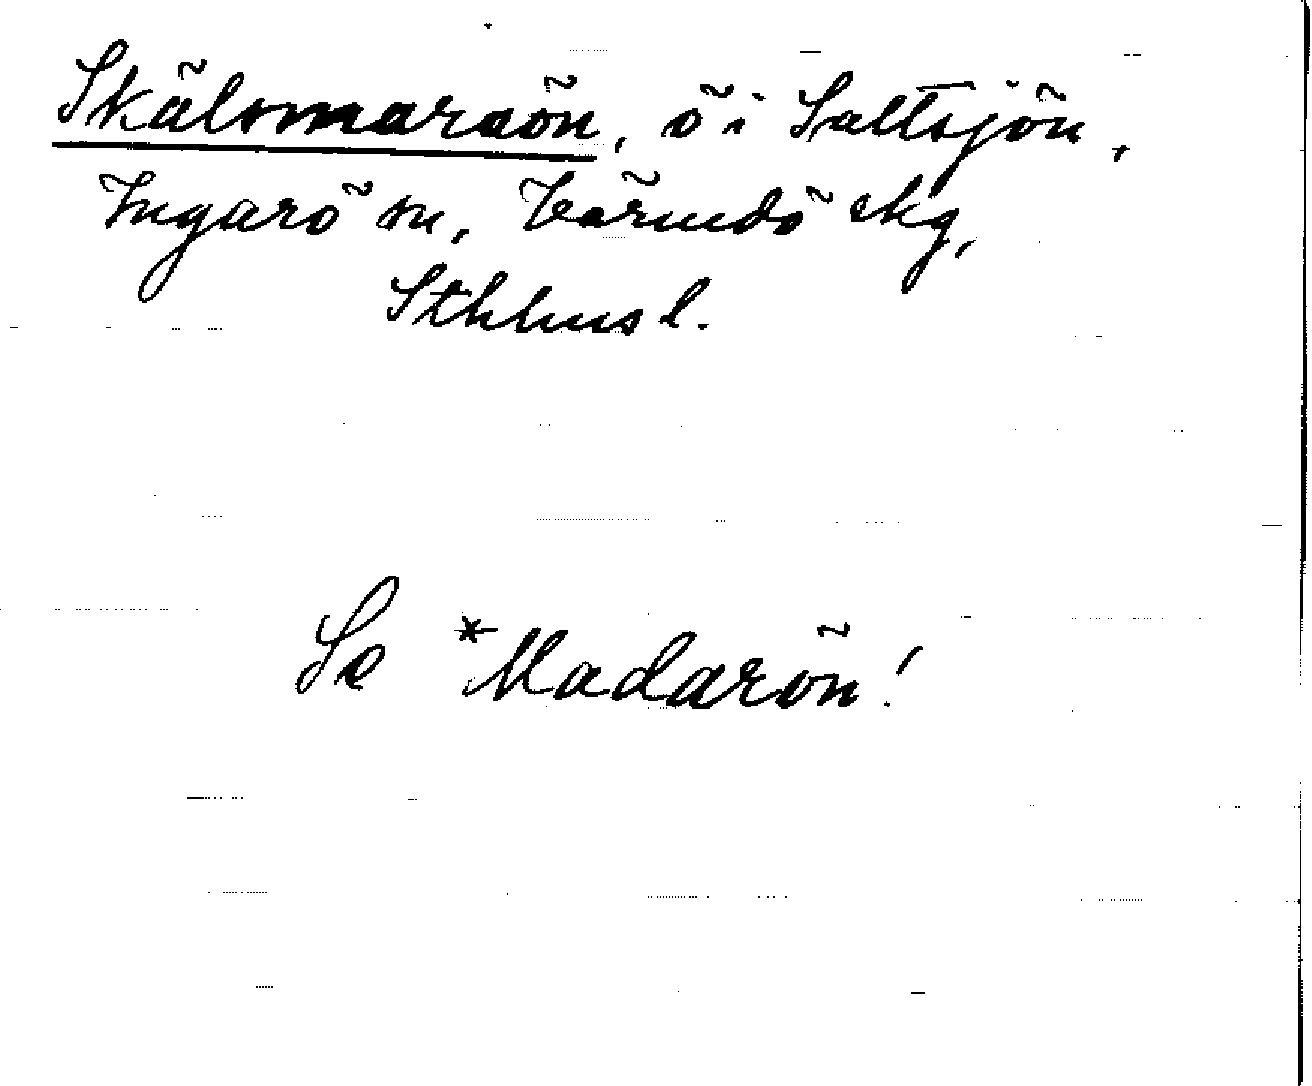 Skälsmaraön, ö i Saltsjön,
Ingarö sn, Värmdö skg,
Sthlms l.
Se *Madarön!